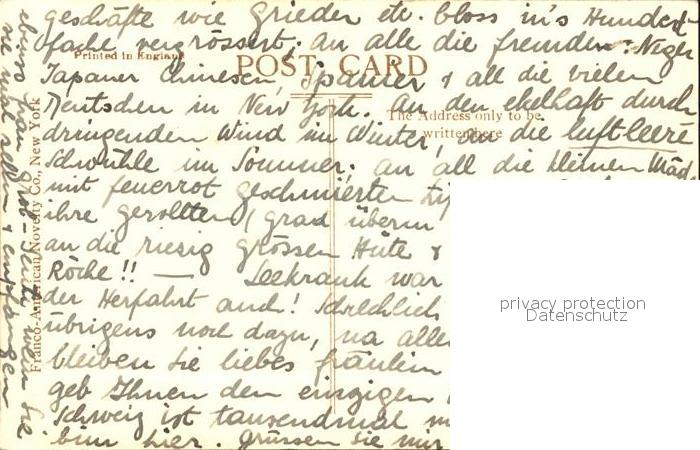 geschäfte wie Grieder etc. bloss in's Hundert-
fache vergrössert; an alle die fremden: Neger
Printed in England
POST CARD
Japaner Chinesen, Spanier & all die vielen
Deutschen in New York. An den ekelhaft durch-
The Address only to be
written here
dringenden Wind im Winter, an die luftleere
Schwühle im Sommer; an all die kleinen Mäd
mit feuerrot geschmierten
ihre gerollten (grad überm
an die riesig grossen Hüte &
Röcke!! — Seekrank war
der Herfahrt auch! Schrecklich
übrigens noch dazu, na alle
bleiben Sie liebes Fräulein
geb Ihnen den einzigen
Schweiz ist tausendmal
bin hier. Grüssen Sie mir
Franco-American Novelty Co., New York
ebenso Frau wenn Sie
sie mal sehen & empfangen
privacy protection
Datenschutz